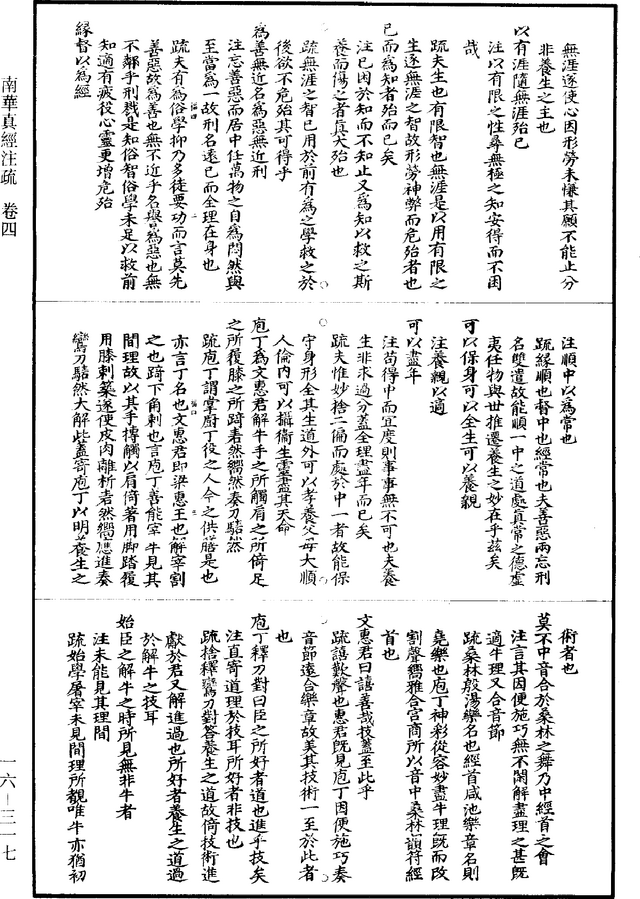 南華真經注疏　卷四
一六—三一七
無涯遂使心困形勞未慊其願不能止分
非養生之主也
以有涯隨無涯殆已
注以有限之性尋無極之知安得而不困
哉
疏夫生也有限智也無涯是以用有限之
生逐無涯之智故形勞神弊而危殆者也
已而為知者殆而已矣
注已困於知而不知止又為知以救之斯
養而傷之者真大殆也
疏無涯之智已用於前有為之學救之於
後欲不危殆其可得乎
為善無近名為惡無近刑
注忘善惡而居中任萬物之自為悶然與
至當為一故刑名遠已而全理在身也
疏夫有為俗學抑乃多徒要切而言莫先
善惡故為善也無不近乎名譽為惡也無
不鄰乎刑戮是知俗智俗學未足以救前
知適有疲役心靈更增危殆
緣督以為經
注順中以為常也
疏緣順也督中也經常也夫善惡兩忘刑
名雙遣故能順一中之道處真常之德虛
夷任物與世推遷養生之妙在乎茲矣
可以保身可以全生可以養親
注養親以適
可以盡年
注苟得中而宜度則事事無不可也夫養
生非求過分蓋全理盡年而已矣
疏夫惟妙捨二偏而處於中一者故能保
守身形全其生道外可以孝養父母大順
人倫內可以攝衛生靈盡其天命
庖丁為文惠君解牛手之所觸肩之所倚足
之所履膝之所踦砉然嚮然奏刀騞然
疏庖丁謂掌廚丁役之人今之供膳是也
亦言丁名也文惠君即梁惠王也解宰割
之也踦下角刺也言庖丁善能宰牛見其
間理故以其手搏觸以肩倚著用脚踏履
用膝刺築遂使皮肉離析砉然嚮應進奏
鸞刀騞然大解此蓋寄庖丁以明養生之
術者也
莫不中音合於桑林之舞乃中經首之會
注言其因便施巧無不閑解盡理之甚既
適牛理又合音節
疏桑林殷湯樂名也經首咸池樂章名則
堯樂也庖丁神彩從容妙盡牛理既而改
割聲嚮雅合宮商所以音中桑林韻符經
首也
文惠君曰譆善哉技蓋至此乎
疏譆歎聲也惠君既見庖丁因便施巧奏
音節遠合樂章故美其技術一至於此者
也
庖丁釋刀對曰臣之所好者道也進乎技矣
注直寄道理於技耳所好者非技也
疏捨釋鸞刀對答養生之道故倚技術進
獻於君又解進過也所好者養生之道過
於解牛之技耳
始臣之解牛之時所見無非牛者
注未能見其理間
疏始學屠宰未見間理所觀唯牛亦猶初